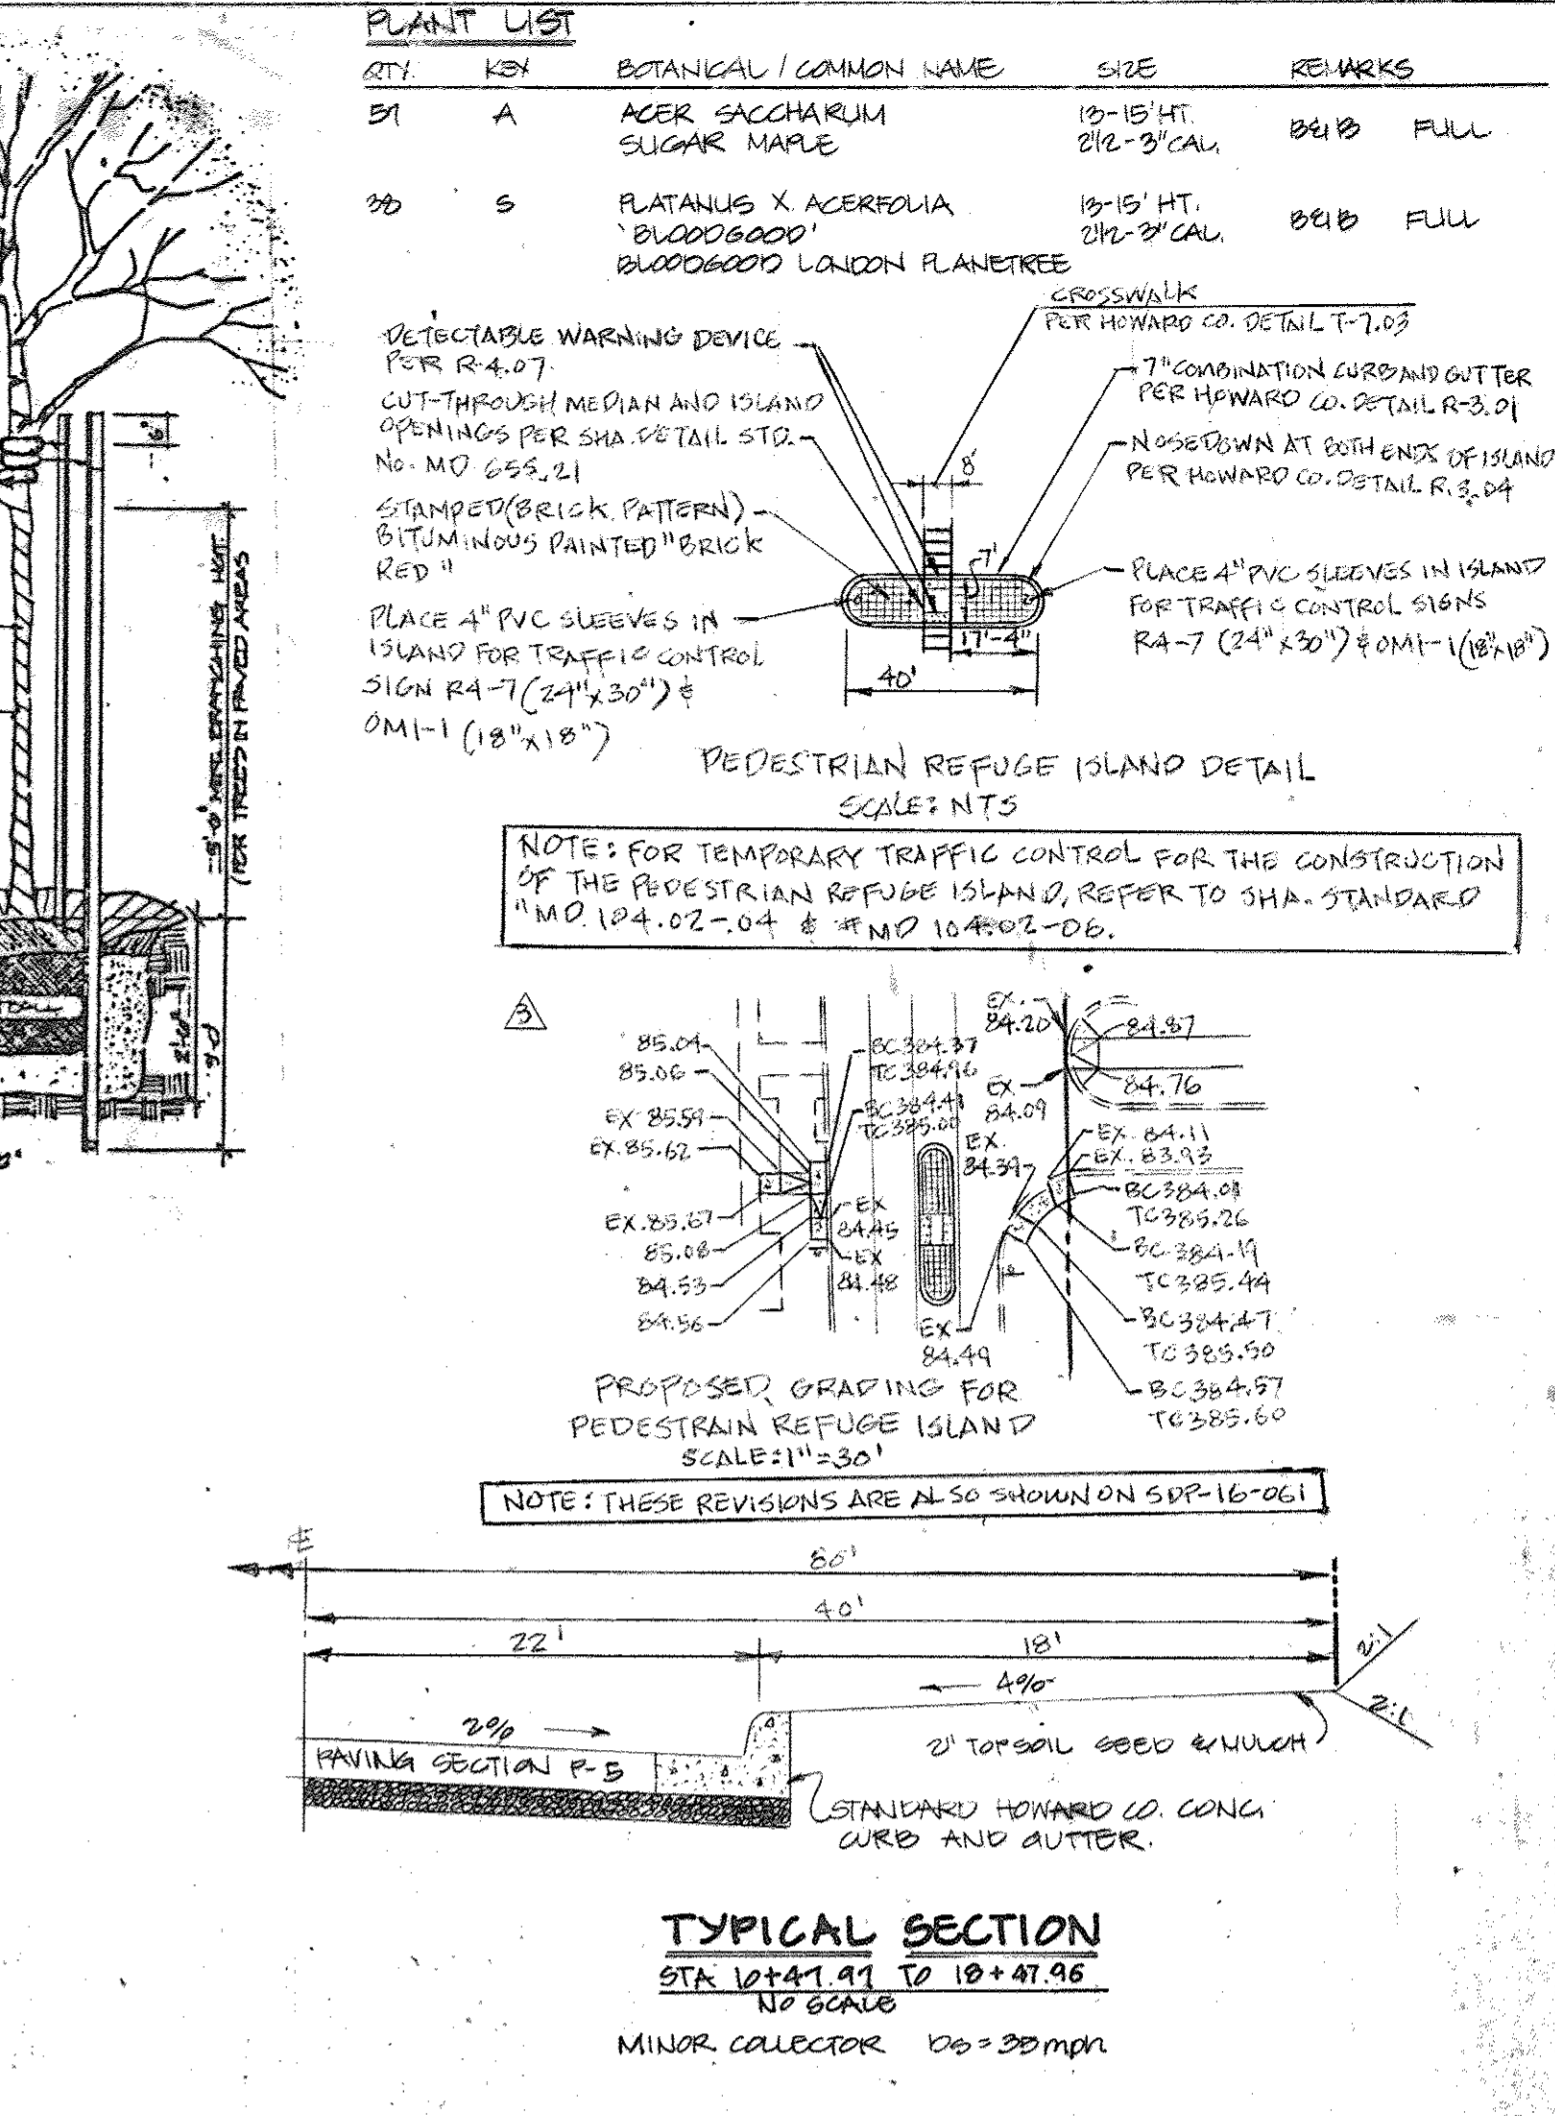 PLANT LIST
QTY. KEY BOTANICAL / COMMON NAME SIZE REMARKS
A ACER SACCHARUM 13-15' HT. B&B FULL
SUGAR MAPLE 2 1/2-3" CAL.
38 S PLATANUS X ACERFOLIA 13-15' HT. B&B FULL
'BLOODGOOD' 2 1/2-3" CAL.
BLOODGOOD LONDON PLANETREE
CROSSWALK
PER HOWARD CO. DETAIL T-7.03
DETECTABLE WARNING DEVICE
PER R-4.07
CUT-THROUGH MEDIAN AND ISLAND
OPENINGS PER SHA. DETAIL STD.
No. MD 655.21
STAMPED (BRICK PATTERN)
BITUMINOUS PAINTED "BRICK
RED"
PLACE 4" PVC SLEEVES IN
ISLAND FOR TRAFFIC CONTROL
SIGN R4-7 (24"x30") &
OM1-1 (18"x18")
7" COMBINATION CURB AND GUTTER
PER HOWARD CO. DETAIL R-3.01
NOSEDOWN AT BOTH ENDS OF ISLAND
PER HOWARD CO. DETAIL R.3.04
PLACE 4" PVC SLEEVES IN ISLAND
FOR TRAFFIC CONTROL SIGNS
R4-7 (24"x30") & OM1-1 (18"x18")
8'
7'
17'-4"
40'
PEDESTRIAN REFUGE ISLAND DETAIL
SCALE: NTS
NOTE: FOR TEMPORARY TRAFFIC CONTROL FOR THE CONSTRUCTION
OF THE PEDESTRIAN REFUGE ISLAND, REFER TO SHA. STANDARD
"MD. 104.02-.04 & #MD 104.02-06.
6"
5'-0" MIN. BRANCHING HGT.
(FOR TREES IN PAVED AREAS
3
85.04
85.06
EX 85.59
EX. 85.62
EX. 85.67
85.08
84.53
84.56
BC 384.37
TC 384.96
BC 384.41
TC 385.00
EX
84.45
EX
84.48
EX.
84.20
84.87
EX
84.09
84.76
EX.
84.39
EX. 84.11
EX. 83.93
BC 384.01
TC 385.26
BC 384.19
TC 385.44
BC 384.47
TC 385.50
BC 384.57
TC 385.60
EX
84.49
PROPOSED GRADING FOR
PEDESTRAIN REFUGE ISLAND
SCALE: 1"=30'
NOTE: THESE REVISIONS ARE ALSO SHOWN ON SDP-16-061
40'
22' 18'
4%
2:1
2:1
2%
PAVING SECTION P-5
2" TOPSOIL SEED & MULCH
STANDARD HOWARD CO. CONC.
CURB AND GUTTER.
TYPICAL SECTION
STA 10+47.97 TO 18+47.96
NO SCALE
MINOR COLLECTOR DS = 35 mph